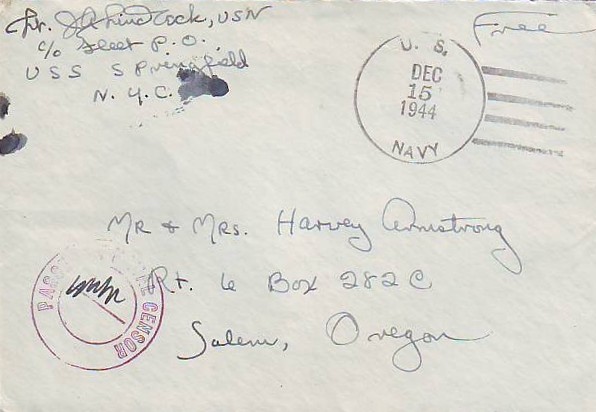 USN
c/o Fleet P.O.
USS Springfield
N.Y.C.
Free
U.S.
DEC
15
1944
NAVY
Mr & Mrs. Harvey Armstrong
Rt. 6 Box 282C
Salem, Oregon
PASSED CENSOR